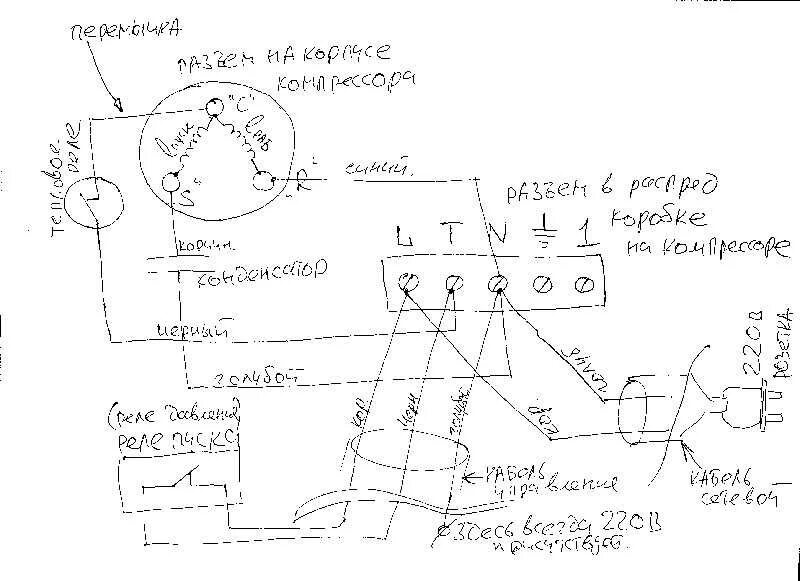 перемычка
разъем на корпусе
компрессора
"C"
Lпуск
Lраб
S"
"R"
тепловое
реле
синий
коричн.
конденсатор
разъем в распред
коробке
на компрессоре
L T N ⏚ 1
черный
голубой
синий
кор
220В
розетка
(реле давления)
реле пуск
кор
черн
голубой
кабель
управления
кабель
сетевой
Здесь всегда 220В
присутствует.